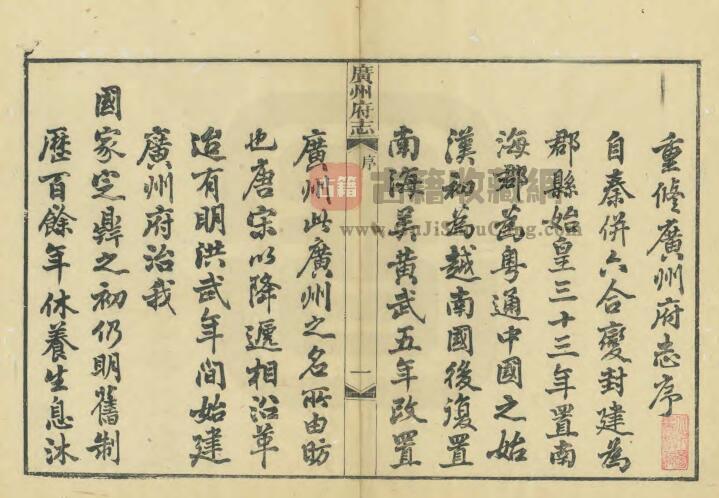 重修廣州府志序
自秦併六合變封建為
郡縣始皇三十三年置南
海郡為粵通中國之始
漢初為越南國後復置
南海吳黃武五年改置
廣州府志
序
一
廣州此廣州之名所由昉
也唐宋以降遞相沿革
迨有明洪武年間始建
廣州府治我
國家定鼎之初仍明舊制
歷百餘年休養生息沐
古籍
古籍收藏網
www.GuJiShouCang.com